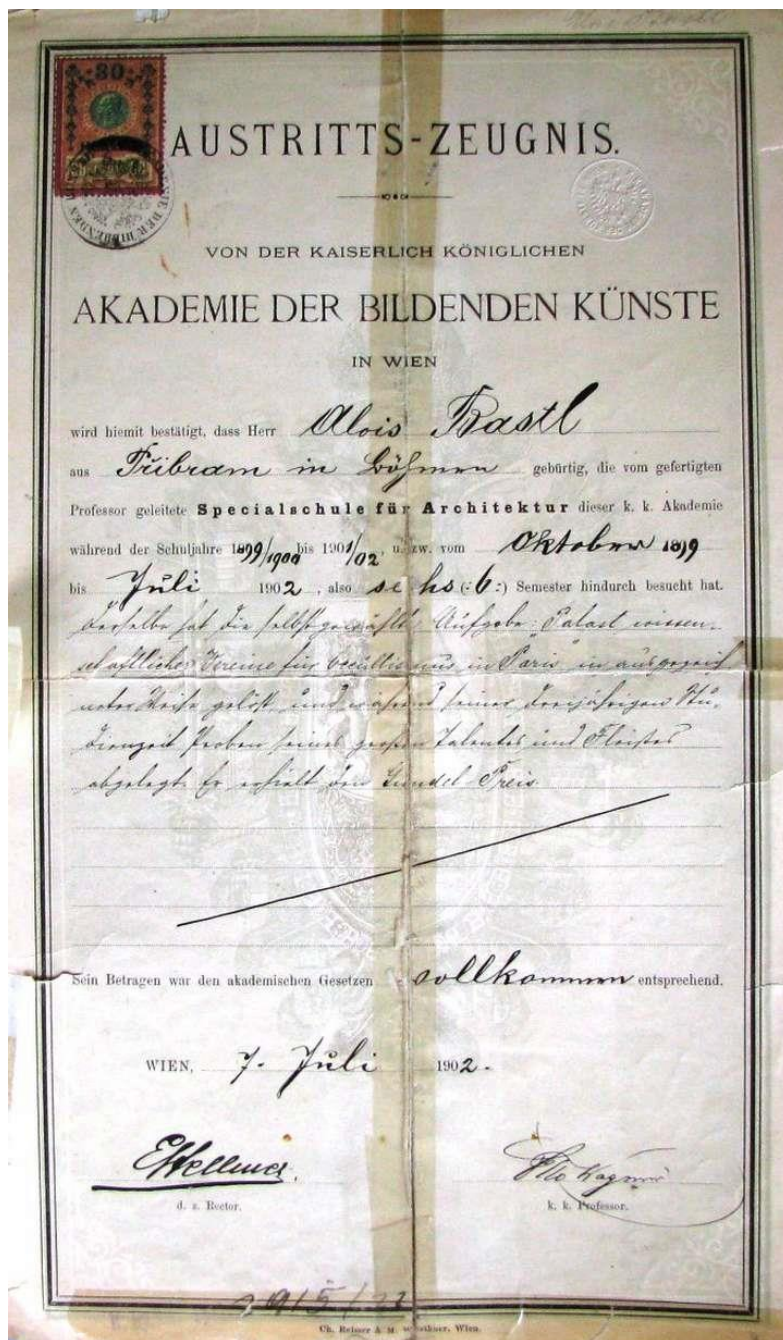 30
AUSTRITTS-ZEUGNIS.
VON DER KAISERLICH KÖNIGLICHEN
AKADEMIE DER BILDENDEN KÜNSTE
IN WIEN
wird hiemit bestätigt, dass Herr Alois Bastl
aus Přibram in Böhmen gebürtig, die vom gefertigten
Professor geleitete Specialschule für Architektur dieser k. k. Akademie
während der Schuljahre 1899/1900 bis 1901/02, u. zw. vom Oktober 1899
bis Juli 1902, also sechs (:6:) Semester hindurch besucht hat.
Derselbe hat die selbstgewählte Aufgabe: "Palast wissen-
schaftlicher Vereine für Occultismus in Paris" in ausgezeich-
neter Weise gelöst und während seiner dreijährigen Stu-
dienzeit Proben seines großen Talentes und Fleißes
abgelegt. Er erhielt den Gundel-Preis.
Sein Betragen war den akademischen Gesetzen vollkommen entsprechend.
WIEN, 7. Juli 1902.
EHellmer. Otto Wagner
d. z. Rector. k. k. Professor.
Ch. Reisser & M. Werthner, Wien.